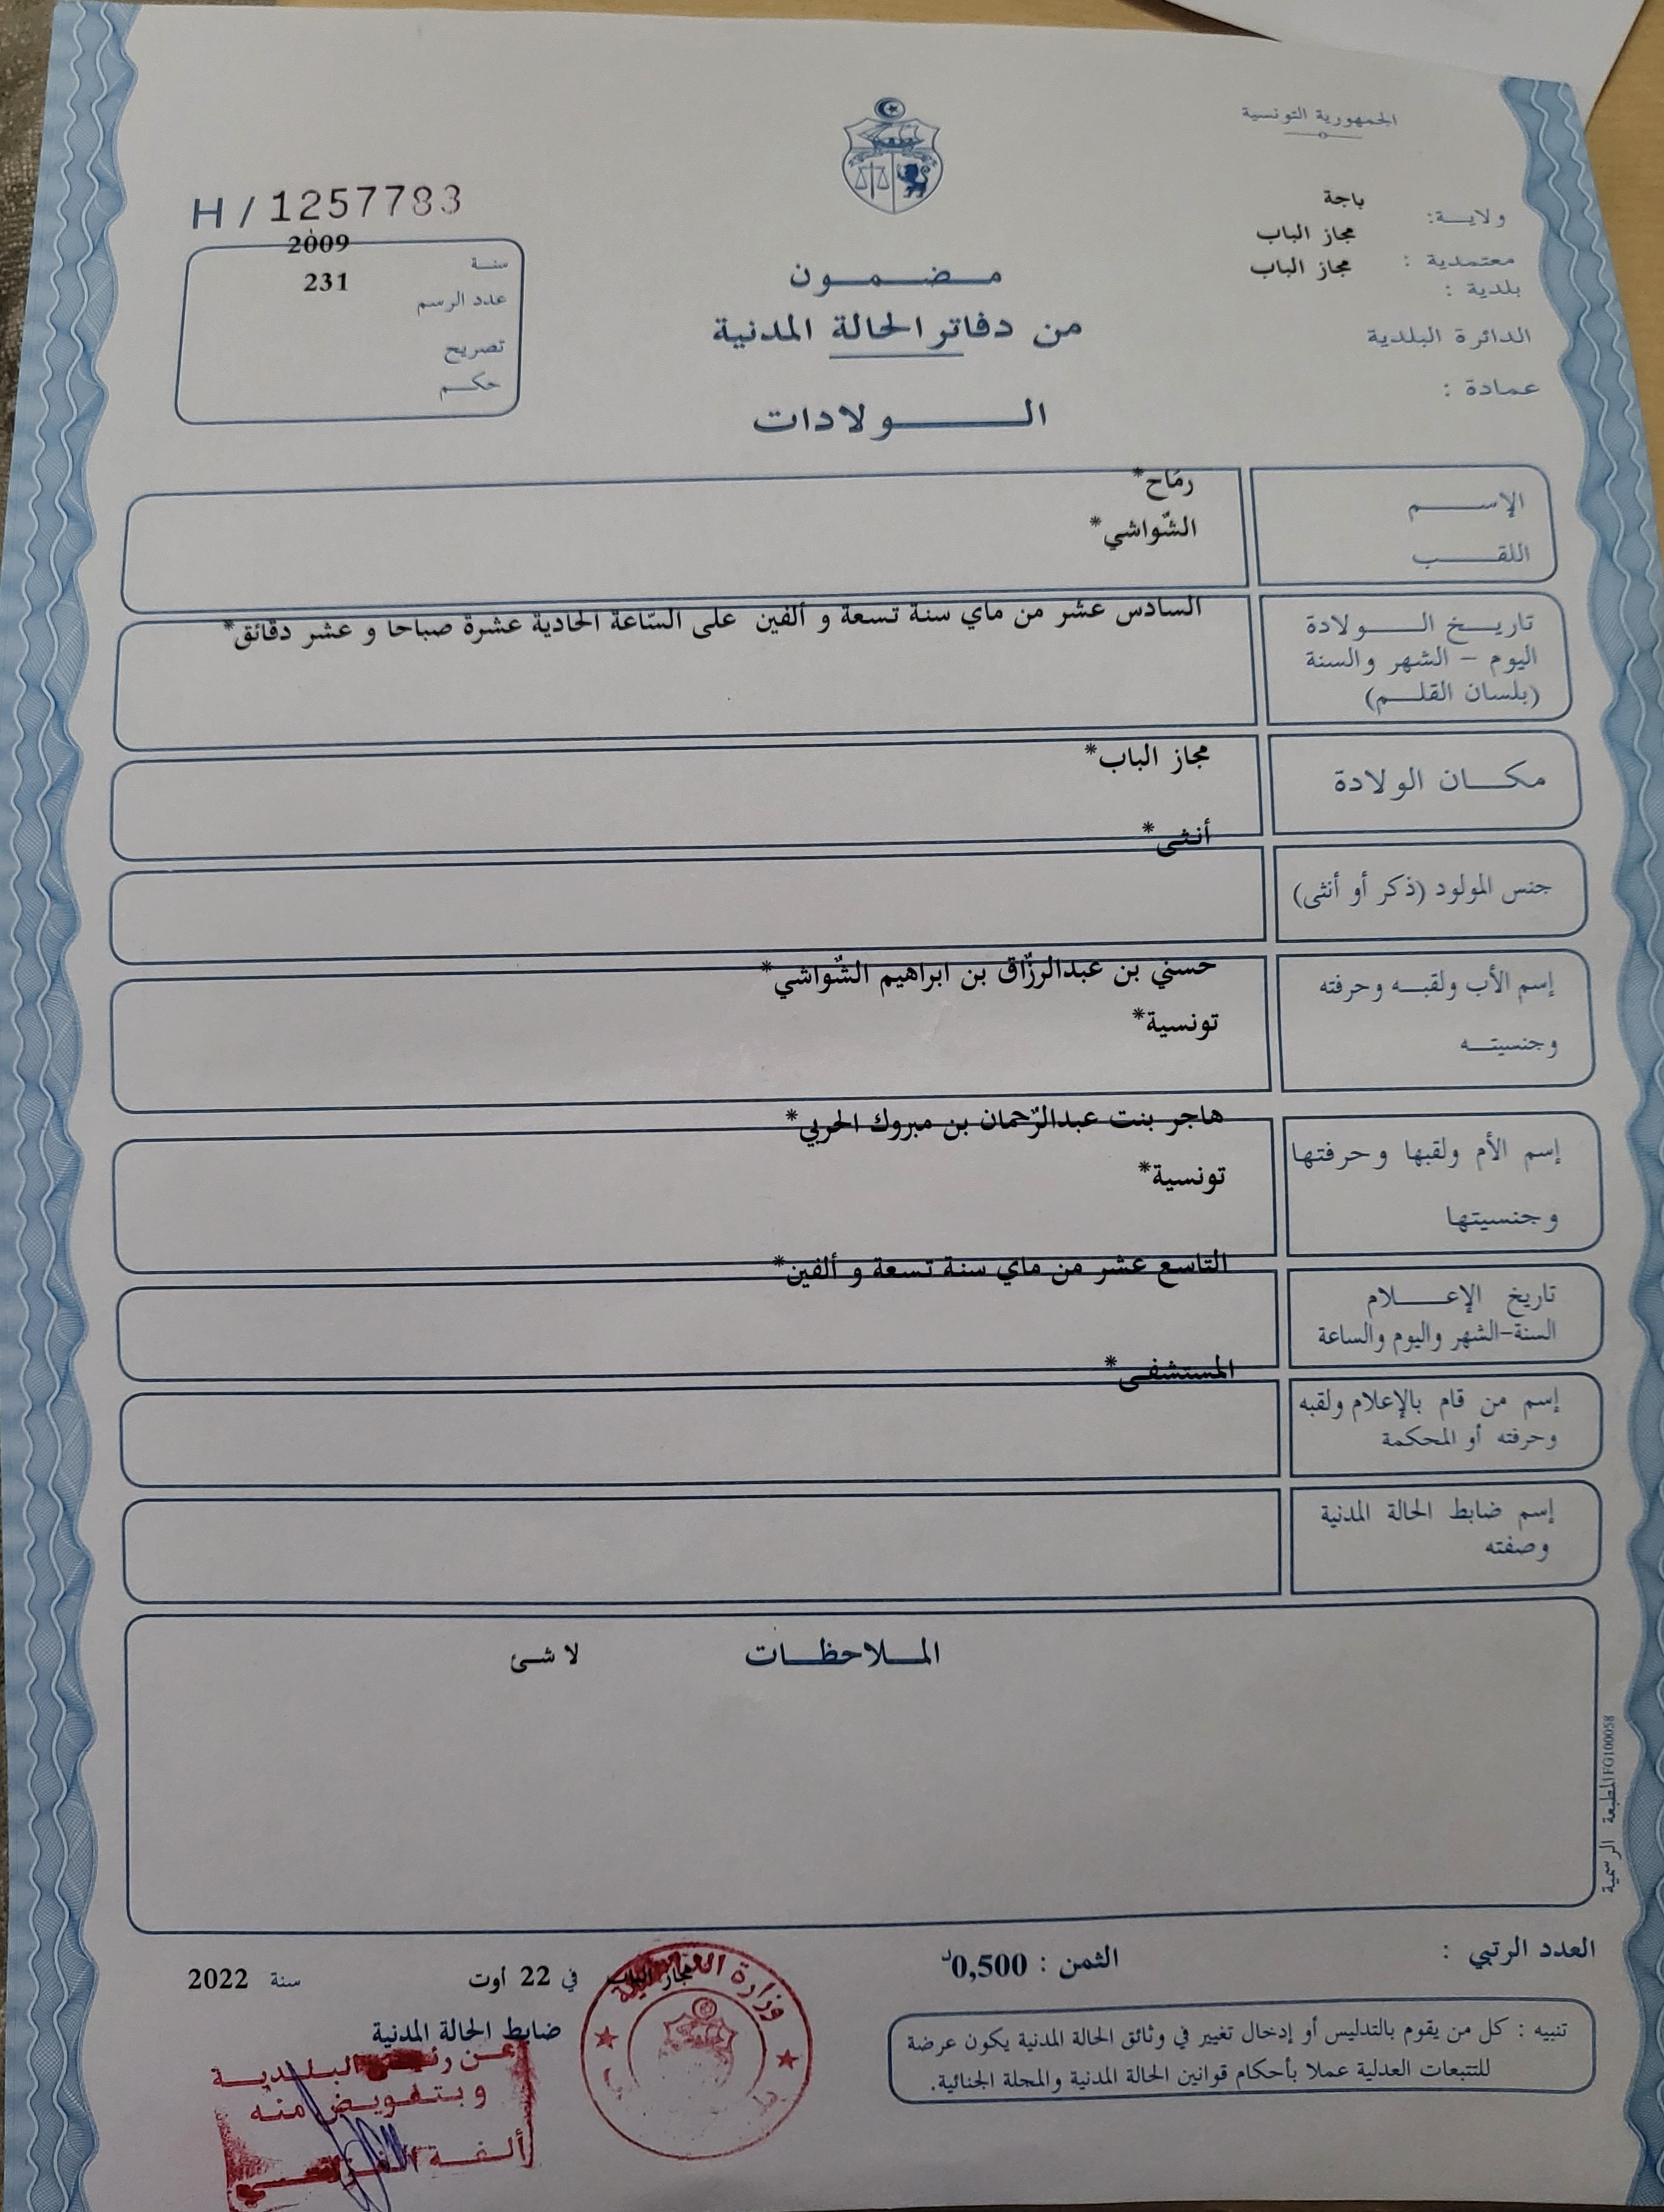 الجمهورية التونسية
ولاية: باجة
معتمدية : مجاز الباب
بلدية : مجاز الباب
الدائرة البلدية
عمادة :
H / 1257783
سنة 2009
عدد الرسم 231
تصريح
حكم
مضمون
من دفاتر الحالة المدنية
الولادات
الإسم رمّاح*
اللقب الشّواشي*
تاريخ الولادة السادس عشر من ماي سنة تسعة و ألفين على السّاعة الحادية عشرة صباحا و عشر دقائق*
اليوم - الشهر والسنة
(بلسان القلم)
مكان الولادة مجاز الباب*
جنس المولود (ذكر أو أنثى) أنثى*
إسم الأب ولقبه وحرفته حسني بن عبدالرزّاق بن ابراهيم الشّواشي*
وجنسيته تونسية*
إسم الأم ولقبها وحرفتها هاجر بنت عبدالرّحمان بن مبروك الحربي*
وجنسيتها تونسية*
تاريخ الإعلام التاسع عشر من ماي سنة تسعة و ألفين*
السنة-الشهر واليوم والساعة
إسم من قام بالإعلام ولقبه المستشفى*
وحرفته أو المحكمة
إسم ضابط الحالة المدنية
وصفته
الملاحظات لا شئ
المطبعة الرسمية FG100058
العدد الرتبي :
الثمن : 0,500د
مجاز الباب في 22 أوت سنة 2022
ضابط الحالة المدنية
عن رئيس البلدية
وبتفويض منه
ألفة
وزارة
تنبيه : كل من يقوم بالتدليس أو إدخال تغيير في وثائق الحالة المدنية يكون عرضة
للتتبعات العدلية عملا بأحكام قوانين الحالة المدنية والمجلة الجنائية.